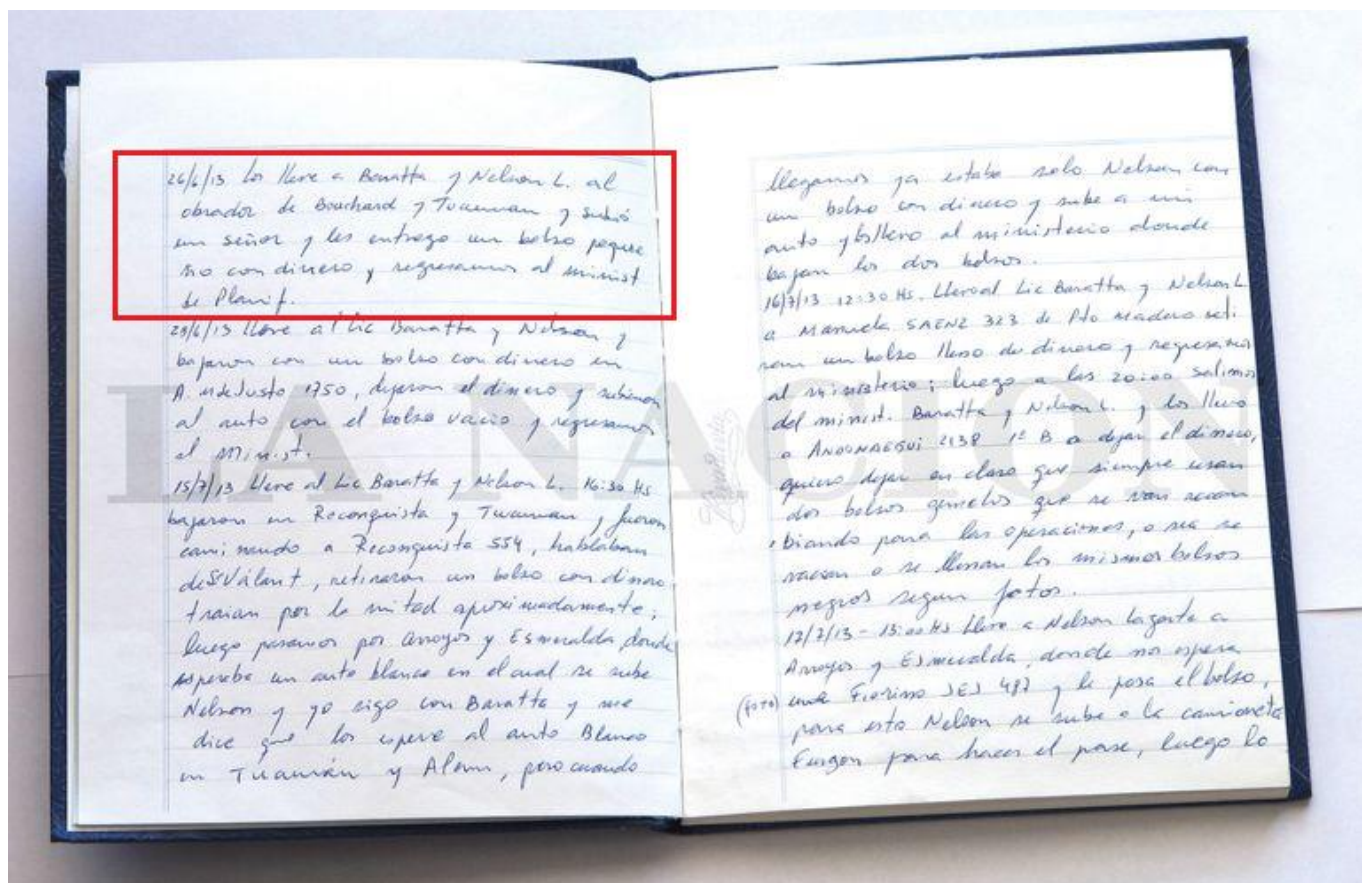 26/6/13 los lleve a Baratta y Nelson L. al
obrador de Bouchard y Tucuman y subió
un señor y les entrego un bolso peque
ño con dinero y regresamos al minist
de Planif.
28/6/13 lleve al Lic Baratta y Nelson y
bajaron con un bolso con dinero en
A. M de Justo 1750, dejaron el dinero y subieron
al auto con el bolso vacio y regresamos
al Minist.
15/7/13 lleve al Lic Baratta y Nelson L. 16:30 Hs
bajaron en Reconquista y Tucuman y fueron
caminando a Reconquista 554, hablaban
de traian por la mitad aproximadamente;
luego pasamos por Arroyos y Esmeralda donde
esperaba un auto blanco en el cual se sube
Nelson y yo sigo con Baratta y me
dice que los espere al auto Blanco
en Tucumán y Alem, pero cuando
llegamos ya estaba solo Nelson con
un bolso con dinero y sube a mi
auto y los llevo al ministerio donde
bajan los dos bolsos.
16/7/13 12:30 Hs. Llevo al Lic Baratta y Nelson L.
a Manuela SAENZ 323 de Pto Madero reti
ran un bolso lleno de dinero y regresamos
al ministerio; luego a las 20:00 salimos
del minist. Baratta y Nelson L. y los llevo
a ANDONAEGUI 2138 1º B a dejar el dinero,
quiero dejar en claro que siempre usan
dos bolsos gemelos que se van recam
biando para las operaciones, o sea se
vacian o se llenan los mismos bolsos
negros segun fotos.
17/7/13 - 15:00 Hs llevo a Nelson Lazarte a
Arroyos y Esmeralda, donde nos espera
(FOTO) una Fiorino JEJ 487 y le pasa el bolso,
para esto Nelson se sube a la camioneta
Furgon para hacer el pase, luego lo
LA NACION